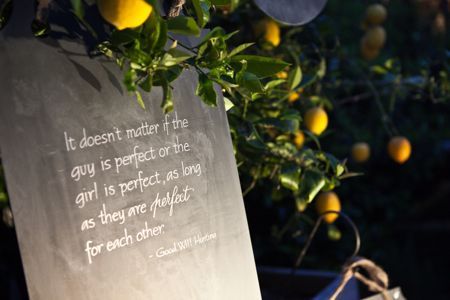 It doesn't matter if the
guy is perfect or the
girl is perfect, as long
as they are perfect
for each other.
- Good Will Hunting